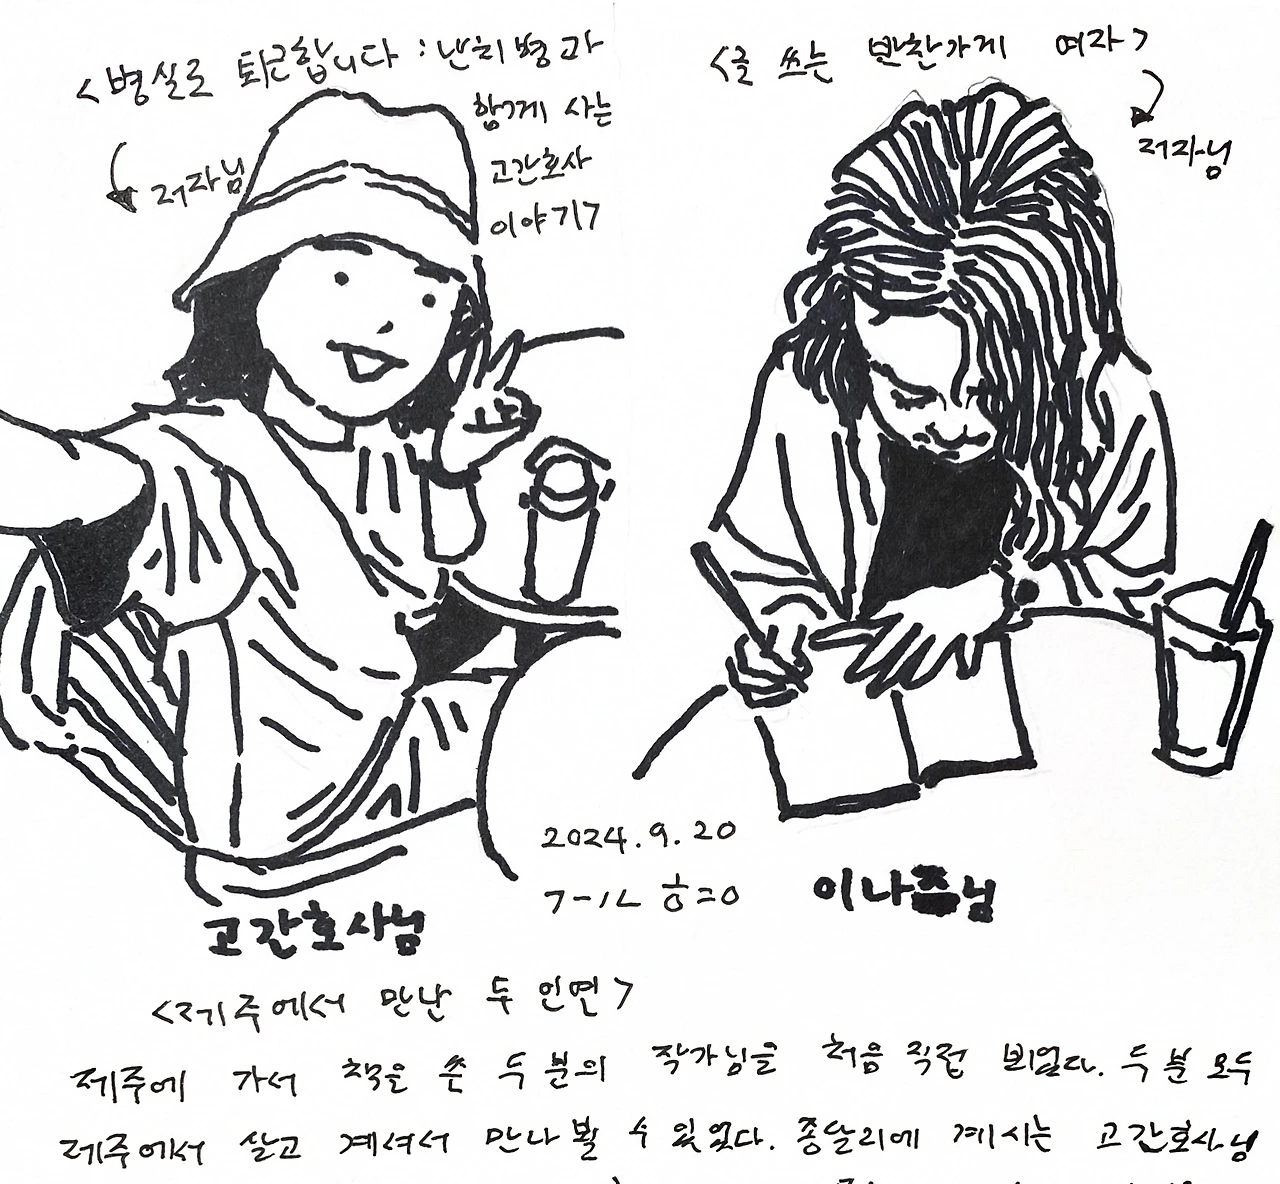 <병실로 퇴근합니다 : 난치병과
함께 사는
고간호사
이야기>
저자님
<글 쓰는 반찬가게 여자>
저자님
2024.9.20
고간호사님
이나님
<제주에서 만난 두 인연>
제주에 가서 책을 쓴 두 분의 작가님을 처음 직접 뵈었다. 두 분 모두
제주에서 살고 계셔서 만나 뵐 수 있었다. 종달리에 계시는 고간호사님